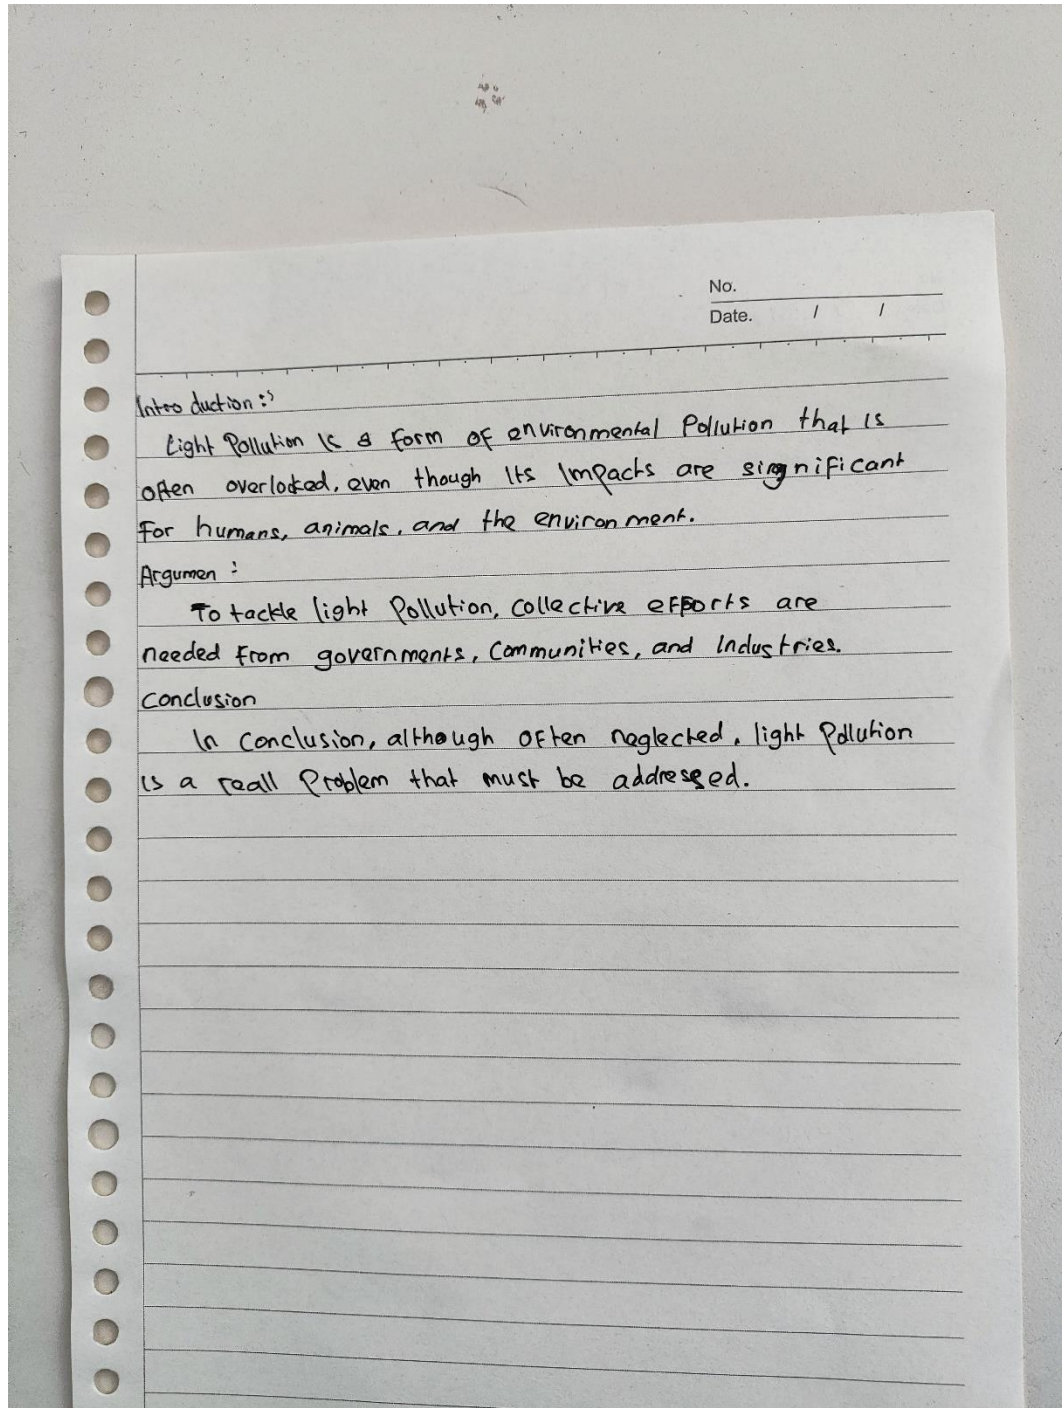 No.
Date. / /
Introduction :
Light Pollution is a form of environmental Pollution that is
often overlocked, even though Its Impacts are significant
for humans, animals, and the environment.
Argumen :
To tackle light Pollution, collective efforts are
needed from governments, Communities, and Industries.
Conclusion
In Conclusion, although often neglected, light Pollution
is a reall Problem that must be addressed.